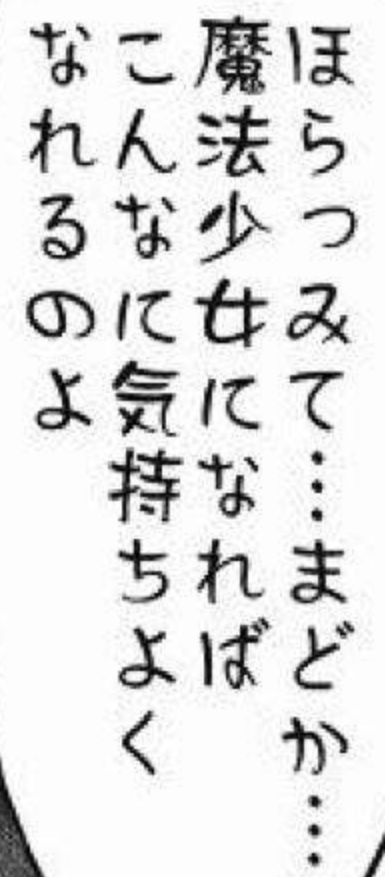 ほらっみて…まどか…
魔法少女になれば
こんなに気持ちよく
なれるのよ